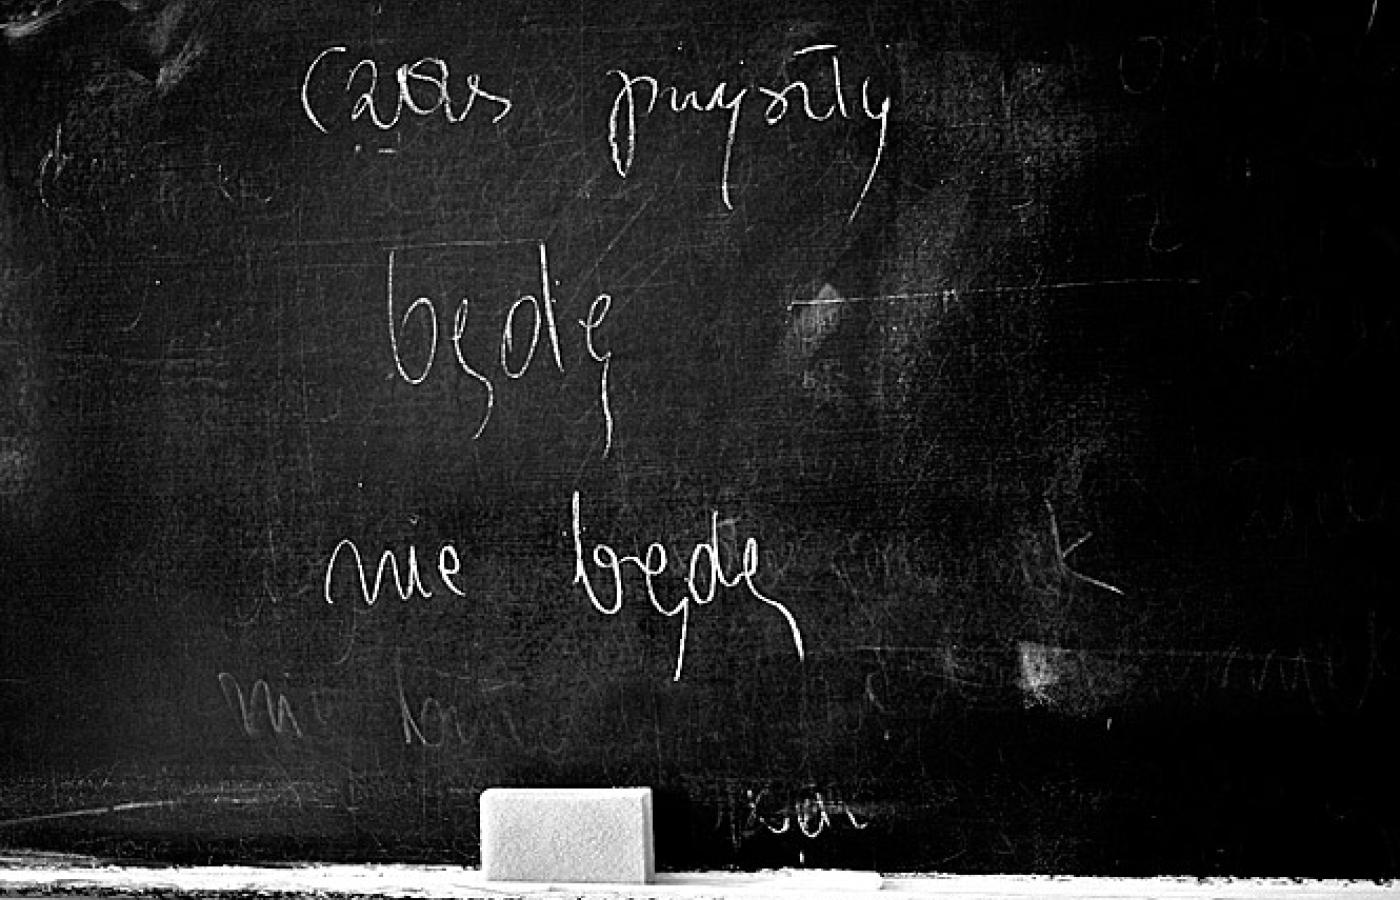 czas przyszły
będę
nie będę